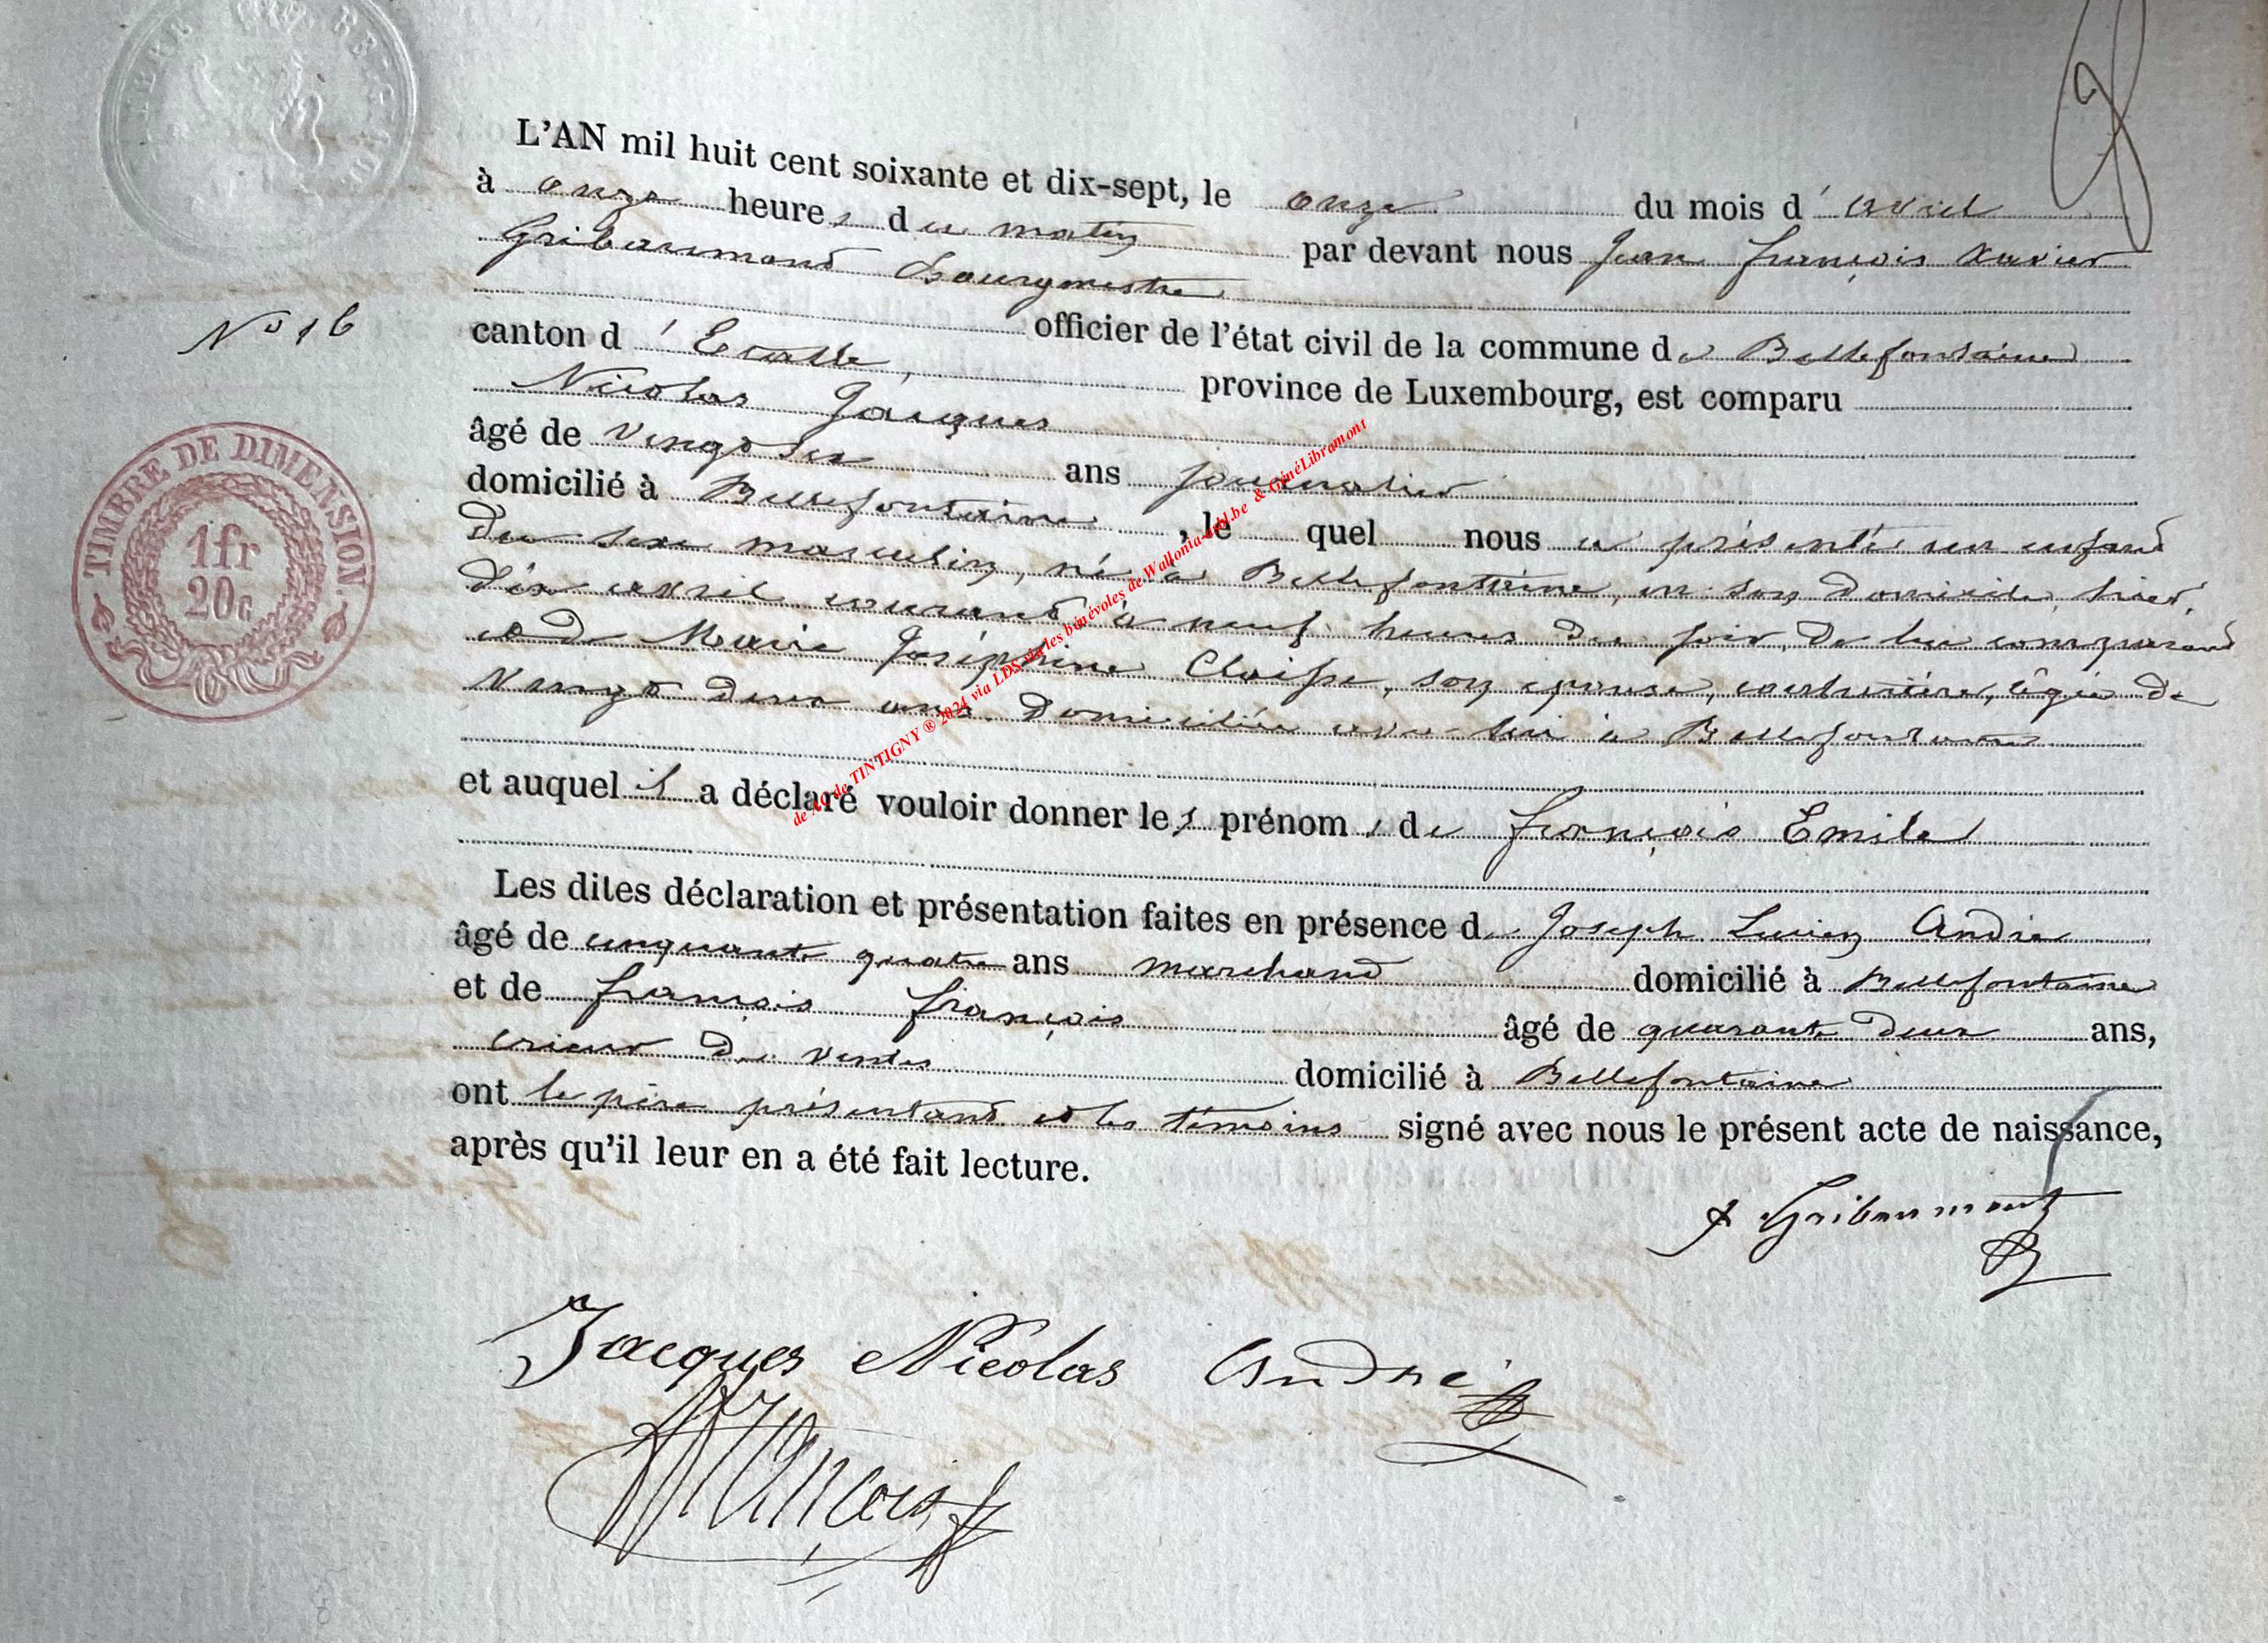 L'AN mil huit cent soixante et dix-sept, le onze du mois d'avril
à onze heures du matin par devant nous Jean françois Xavier
Gribaumont Bourgmestre
officier de l'état civil de la commune de Bellefontaine
N° 16
canton d'Etalle, province de Luxembourg, est comparu
Nicolas Jacques
âgé de vingt six ans journalier
domicilié à Bellefontaine, le quel nous a présenté un enfant
du sexe masculin, né à Bellefontaine, en son domicile, hier,
dix avril courant à neuf heures du soir, de lui comparant
et de Marie Joséphine Claisse, son épouse, couturière, âgée de
vingt deux ans. Domiciliée avec lui à Bellefontaine
et auquel il a déclaré vouloir donner les prénoms de françois Emile
Les dites déclaration et présentation faites en présence de Joseph Lucien André
âgé de cinquante quatre ans marchand domicilié à Bellefontaine
et de françois françois âgé de quarante deux ans,
crieur de ventes domicilié à Bellefontaine
ont le père présentant et les témoins signé avec nous le présent acte de naissance,
après qu'il leur en a été fait lecture.
Gribaumont
Jacques Nicolas André
François
TIMBRE DE DIMENSION.
1fr
20c
de TINTIGNY ® 2024 via LDS via les bénévoles de Wallonia-asbl.be & GénéLibramont